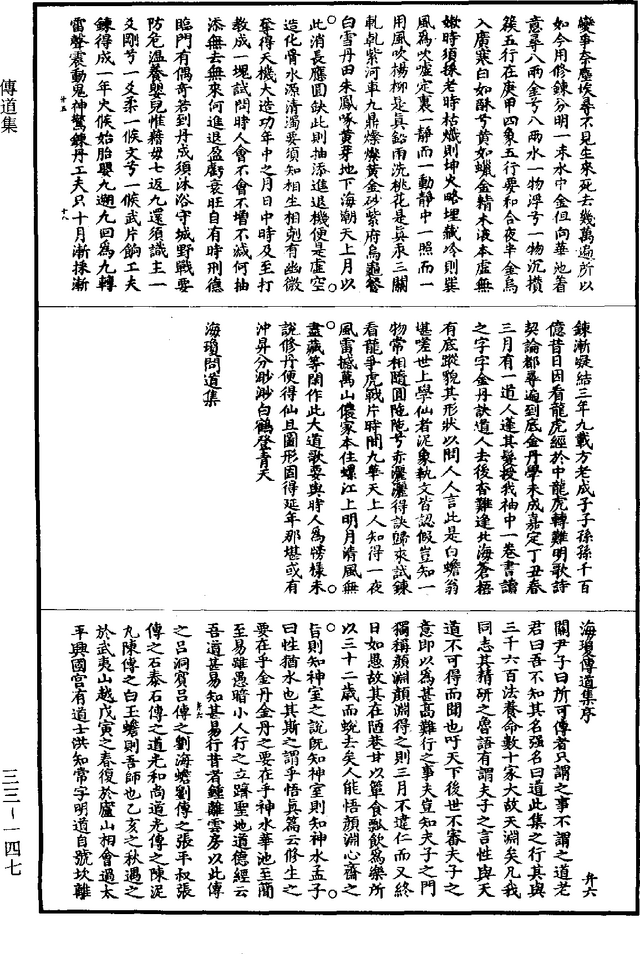 傳道集
變爭奈塵埃尋不見生來死去幾萬遍所以
如今用修鍊分明一末水中金但向華池着
意尋八兩金兮八兩水一物浮兮一物沉攢
簇五行在庚甲四象五行要和合夜半金烏
入廣寒白如酥兮黃如蠟金精木液本虛無
嫩時須採老時枯熾則坤火略埋藏冷則巽
風為吹噓定裏一靜而一動靜中一照而一
用風吹楊柳是真鉛雨洗桃花是真汞三關
軋軋紫河車九鼎燦燦黃金砂紫府烏龜餐
白雪丹田朱鳳啄黃芽地下海潮天上月以
此消長應圓缺此則抽添進退機便是虛空
造化骨水源清濁要須知相生相剋有幽微
奪得天機大造功年中之月日中時及至打
教成一塊試問時人會不會不增不減何抽
添無去無來何進退盈虧衰旺自有時刑德
臨門有偶奇若到丹成須沐浴守城野戰要
防危溫養嬰兒惟藉母七返九還須識主一
爻剛兮一爻柔一候文兮一候武片餉工夫
鍊得成一年火候始胎嬰九遡九回為九轉
雷聲震動鬼神驚鍊丹工夫只十月漸採漸
鍊漸凝結三年九載方老成子子孫孫千百
億昔日因看龍虎經於中龍虎轉難明歌詩
契論都尋遍到底金丹學未成嘉定丁丑春
三月有一道人蓬其髮授我袖中一卷書讀
之字字金丹訣道人去後杳難逢北海蒼梧
有底蹤貌其形狀以問人人言此是白蟾翁
堪嗟世上學仙者泥象執文皆認假豈知一
物常相隨圓陁陁兮赤灑灑得訣歸來試鍊
看龍爭虎戰片時間九華天上人知得一夜
風雷撼萬山儂家本住螺江上明月清風無
盡藏等閑作此大道歌要與時人為榜樣未
說修丹便得仙且圖形固得延年那堪或有
沖昇分渺渺白鶴登青天
海瓊問道集
海瓊傳道集序
關尹子曰所可傳者只謂之事不謂之道老
君曰吾不知其名強名曰道此集之行其與
三千六百法養命數十家大故天淵矣凡我
同志其精研之魯語有謂夫子之言性與天
道不可得而聞也吁天下後世不審夫子之
意即以為甚高難行之事夫豈知夫子之門
獨稱顏淵顏淵得之則三月不違仁而又終
日如愚故其在陋巷甘以簞食瓢飲為樂所
以三十二歲而蛻去矣人能悟顏淵心齋之
旨則知神室之說既知神室則知神水孟子
曰性猶水也其斯之謂乎悟真篇云修生之
要在乎金丹金丹之要在乎神水華池至簡
至易雖愚暗小人行之立躋聖地道德經云
吾道甚易知甚易行昔者鍾離雲房以此傳
之呂洞賓呂傳之劉海蟾劉傳之張平叔張
傳之石泰石傳之道光和尚道光傳之陳泥
丸陳傳之白玉蟾則吾師也乙亥之秋遇之
於武夷山越戊寅之春復於廬山相會過太
平興國宮有道士洪知常字明道自號坎離
三三－一四七